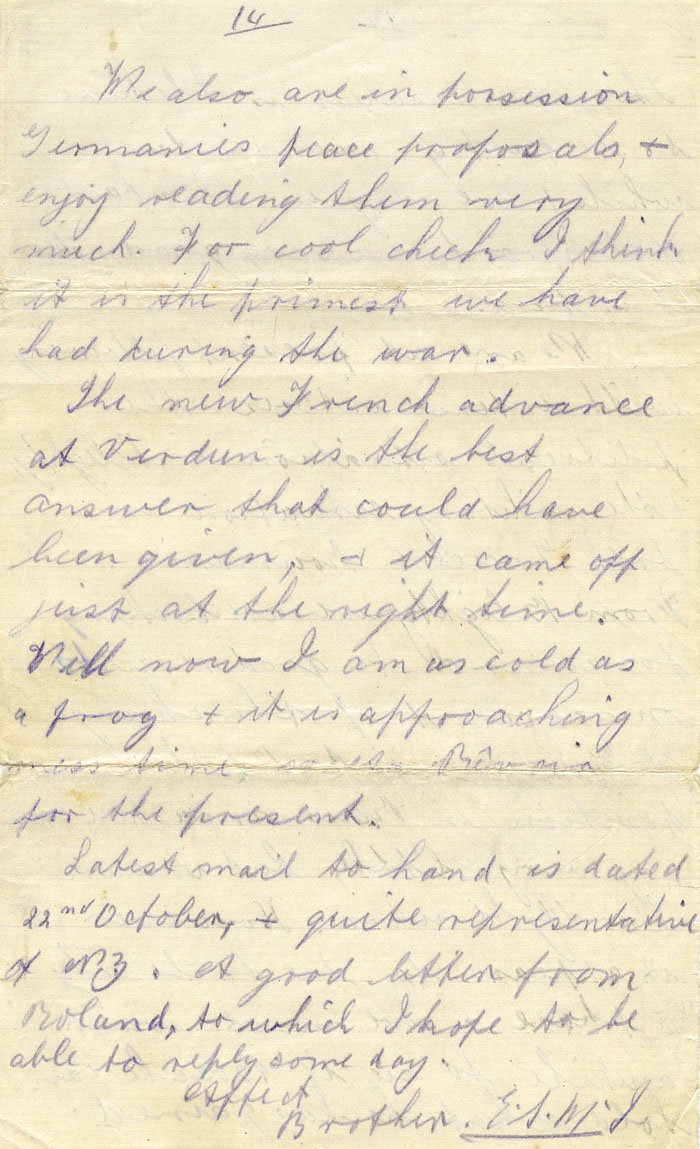 14
We also are in possession
Germanies peace proposals, +
enjoy reading them very
much. For cool cheek I think
it is the primest we have
had during the war.
The new French advance
at Verdun is the best
answer that could have
been given, + it came off
just at the right time.
Well now I am as cold as
a frog + it is approaching
mess time,
for the present.
Latest mail to hand is dated
22nd October, + quite representative
of NZ. A good letter from
Roland, to which I hope to be
able to reply some day.
Affect
Brother.